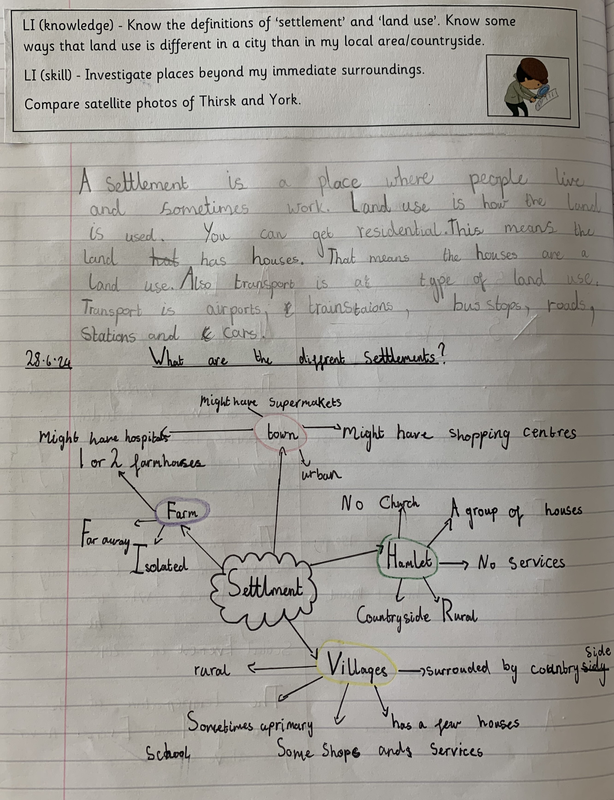 LI (knowledge) - Know the definitions of ‘settlement’ and ‘land use’. Know some
ways that land use is different in a city than in my local area/countryside.
LI (skill) - Investigate places beyond my immediate surroundings.
Compare satellite photos of Thirsk and York.
A settlement is a place where people live
and sometimes work. Land use is how the land
is used. You can get residential. This means the
land that has houses. That means the houses are a
land use. Also transport is at type of land use.
Transport is airports, & trainstaions, bus stops, roads,
Stations and & cars.
28.6.24 What are the diffrent Settlements?
Might have supermakets
Might have hospitals
town
Might have shopping centres
urban
1 or 2 farmhouses
Farm
Far away
Isolated
No Church
A group of houses
Hamlet
No services
Countryside
Rural
Settlment
Villages
rural
surrouded by countrysidy side
Sometimes a primary
School
Some Shops ands Services
has a few houses